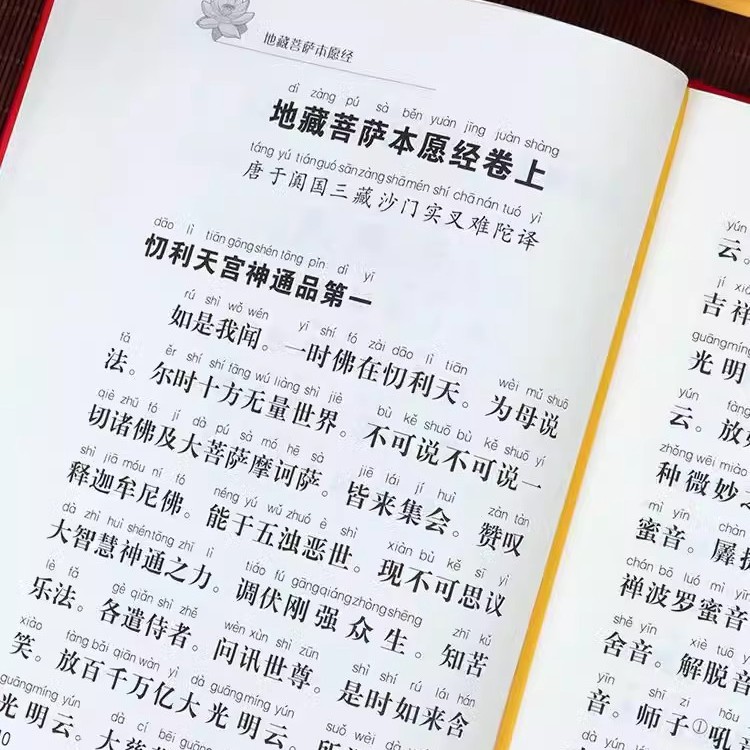 地藏菩萨本愿经
dì zàng pú sà běn yuàn jīng juàn shàng
地藏菩萨本愿经卷上
táng yú tián guó sān zàng shā mén shí chā nán tuó yì
唐于阗国三藏沙门实叉难陀译
dāo lì tiān gōng shén tōng pǐn dì yī
忉利天宫神通品第一
rú shì wǒ wén yì shí fó zài dāo lì tiān wèi mǔ shuō
如是我闻。一时佛在忉利天。为母说
fǎ ěr shí shí fāng wú liàng shì jiè bù kě shuō bù kě shuō yí
法。尔时十方无量世界。不可说不可说一
qiè zhū fó jí dà pú sà mó hē sà jiē lái jí huì zàn tàn
切诸佛及大菩萨摩诃萨。皆来集会。赞叹
shì jiā móu ní fó néng yú wǔ zhuó è shì xiàn bù kě sī yì
释迦牟尼佛。能于五浊恶世。现不可思议
dà zhì huì shén tōng zhī lì tiáo fú gāng qiáng zhòng shēng zhī kǔ
大智慧神通之力。调伏刚强众生。知苦
lè fǎ gè qiǎn shì zhě wèn xùn shì zūn shì shí rú lái hán
乐法。各遣侍者。问讯世尊。是时如来含
xiào fàng bǎi qiān wàn yì dà guāng míng yún
笑。放百千万亿大光明云。所
guāng míng yún dà cí bēi guāng suǒ wèi dà
光明云。大慈
yún
云。
jí xiá
吉祥
guāng míng
光明
yún fàng
云。放如
zhǒng wēi miào
种微妙之
mì yīn chàn
蜜音。羼提
chán bō luó mì yīn
禅波罗蜜音
shě yīn xiè tuō
舍音。解脱音
yīn shī zǐ hǒu
音。师子①吼音